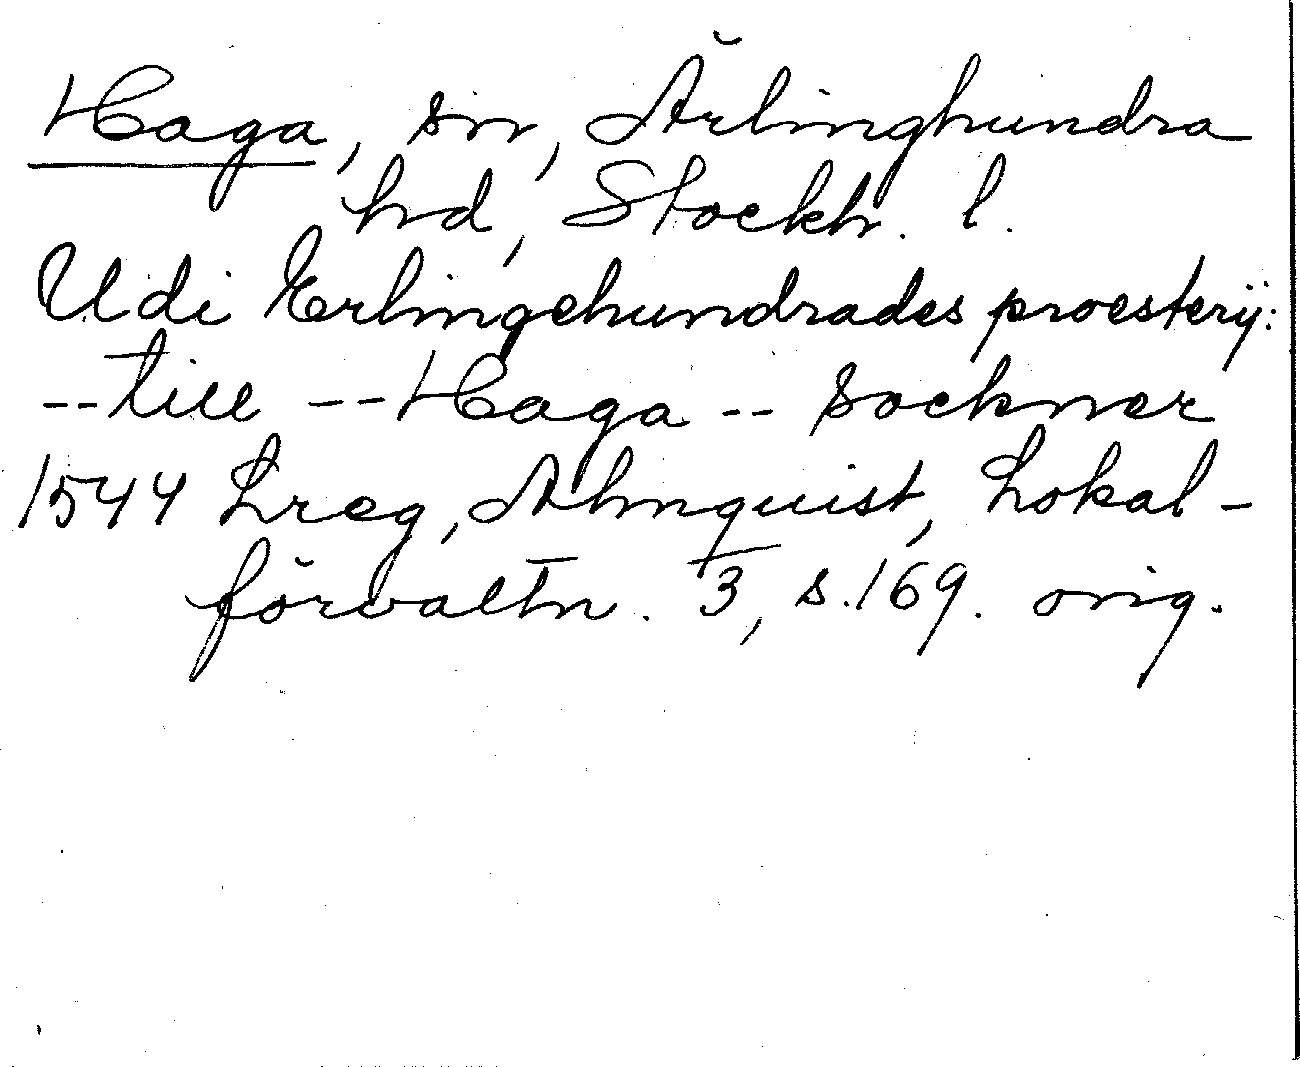 Haga, sn, Ärlinghundra
hd, Stockh. l.
Udi Erlingehundrades proesterij:
-- till -- Haga -- sockner
1544 Lreg, Almquist, Lokal-
förvaltn. 3, s. 169. orig.